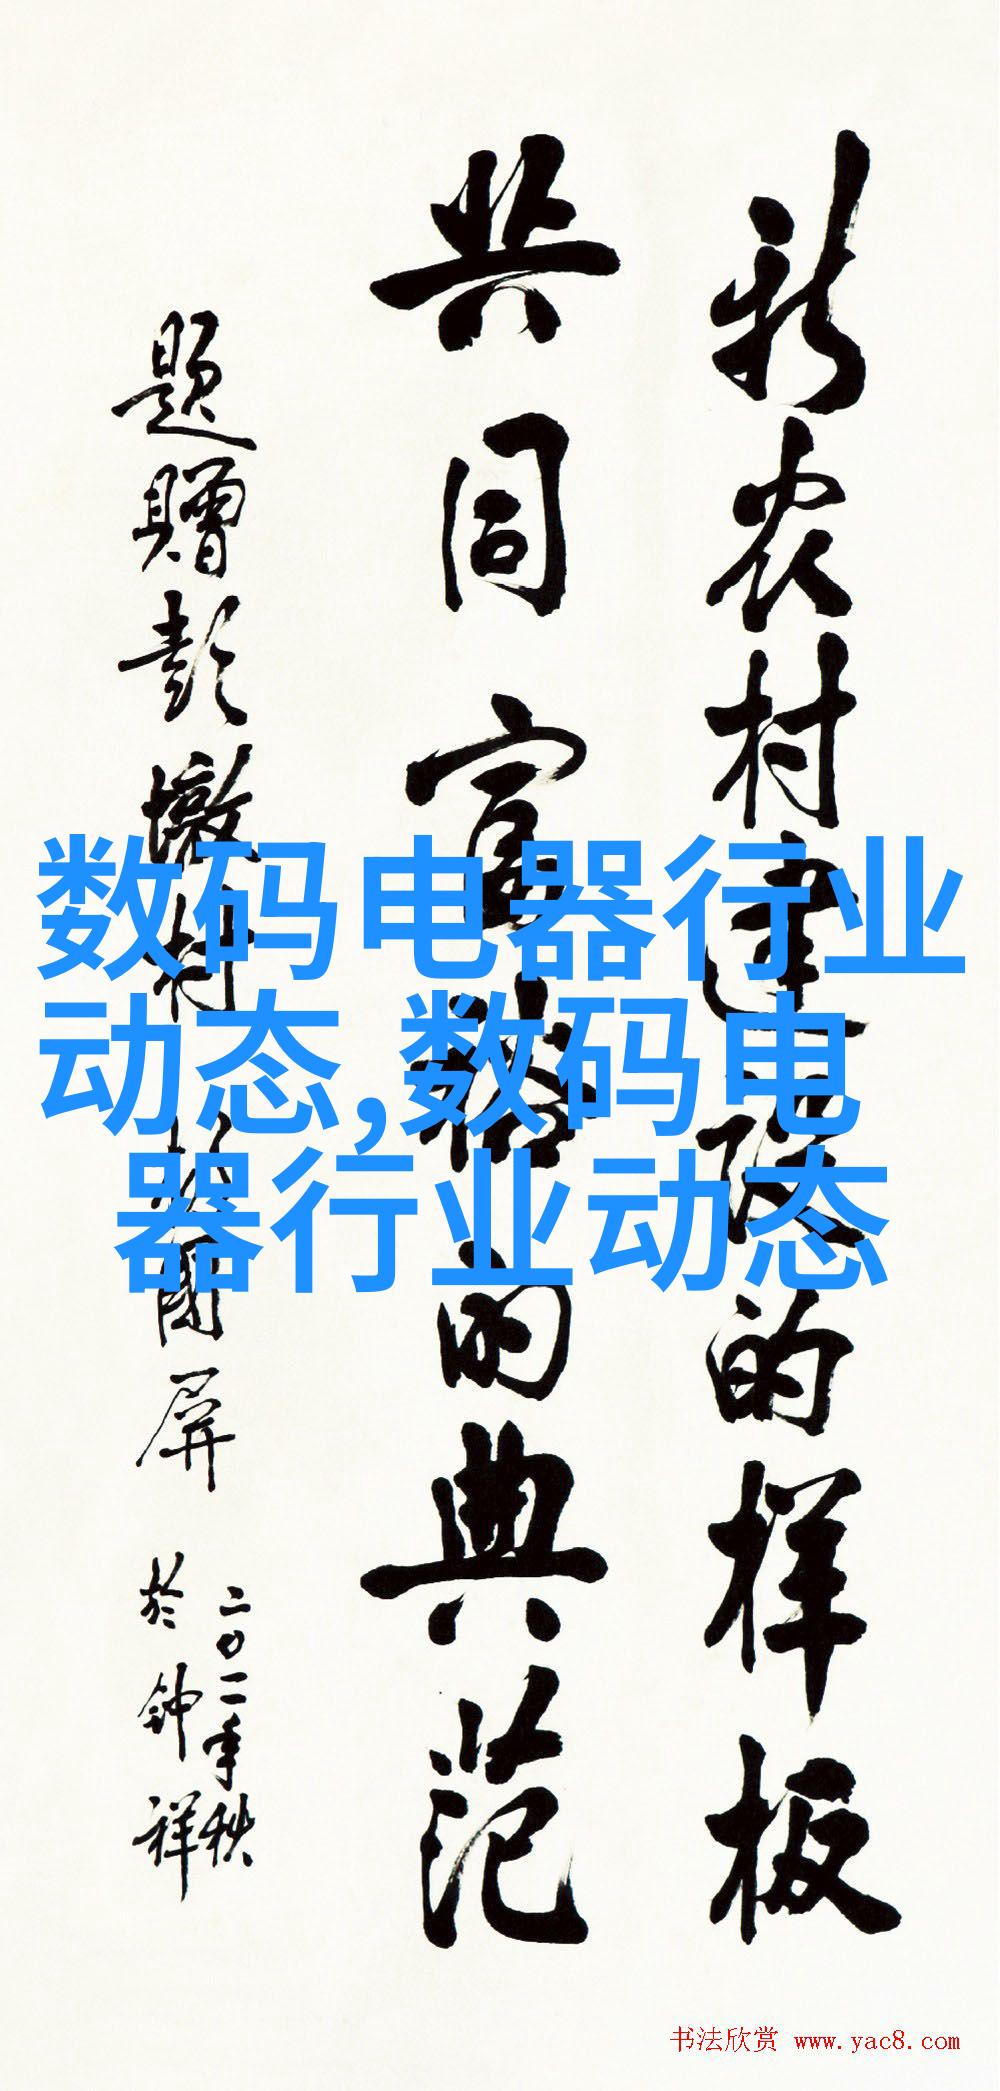 新农村建设的样板
共同富裕的典范
题赠彭墩村
国屏
二〇一一年秋
於钟祥
数码电器行业
动态,数码电
器行业动态
书法欣赏 www.yac8.com